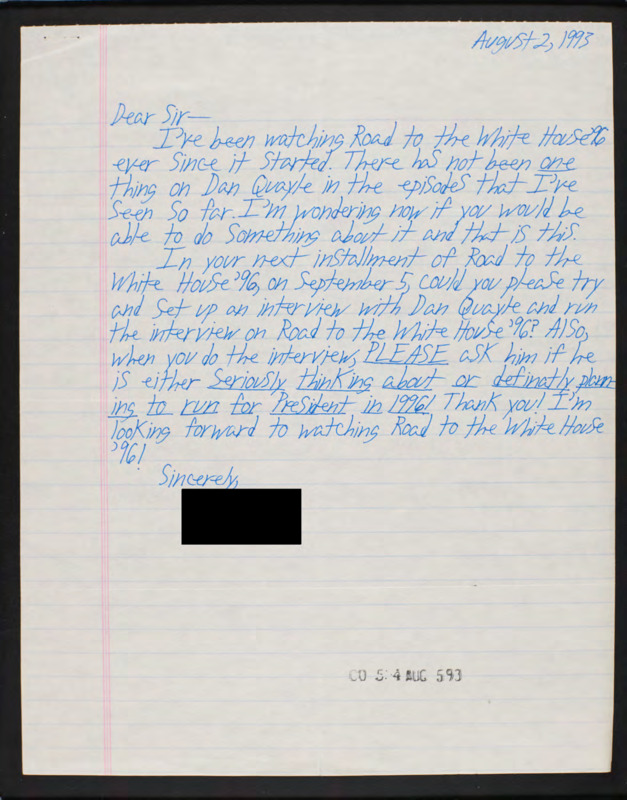 August 2, 1993
Dear Sir—
I've been watching Road to the White House '96
ever since it started. There has not been one
thing on Dan Quayle in the episodes that I've
seen so far. I'm wondering now if you would be
able to do something about it and that is this.
In your next installment of Road to the
White House '96, on September 5, could you please try
and set up an interview with Dan Quayle and run
the interview on Road to the White House '96? Also,
when you do the interview, PLEASE ask him if he
is either seriously thinking about or definatly plann-
ing to run for President in 1996! Thank you! I'm
looking forward to watching Road to the White House
'96!
Sincerely,
CO 5: 4 AUG 593